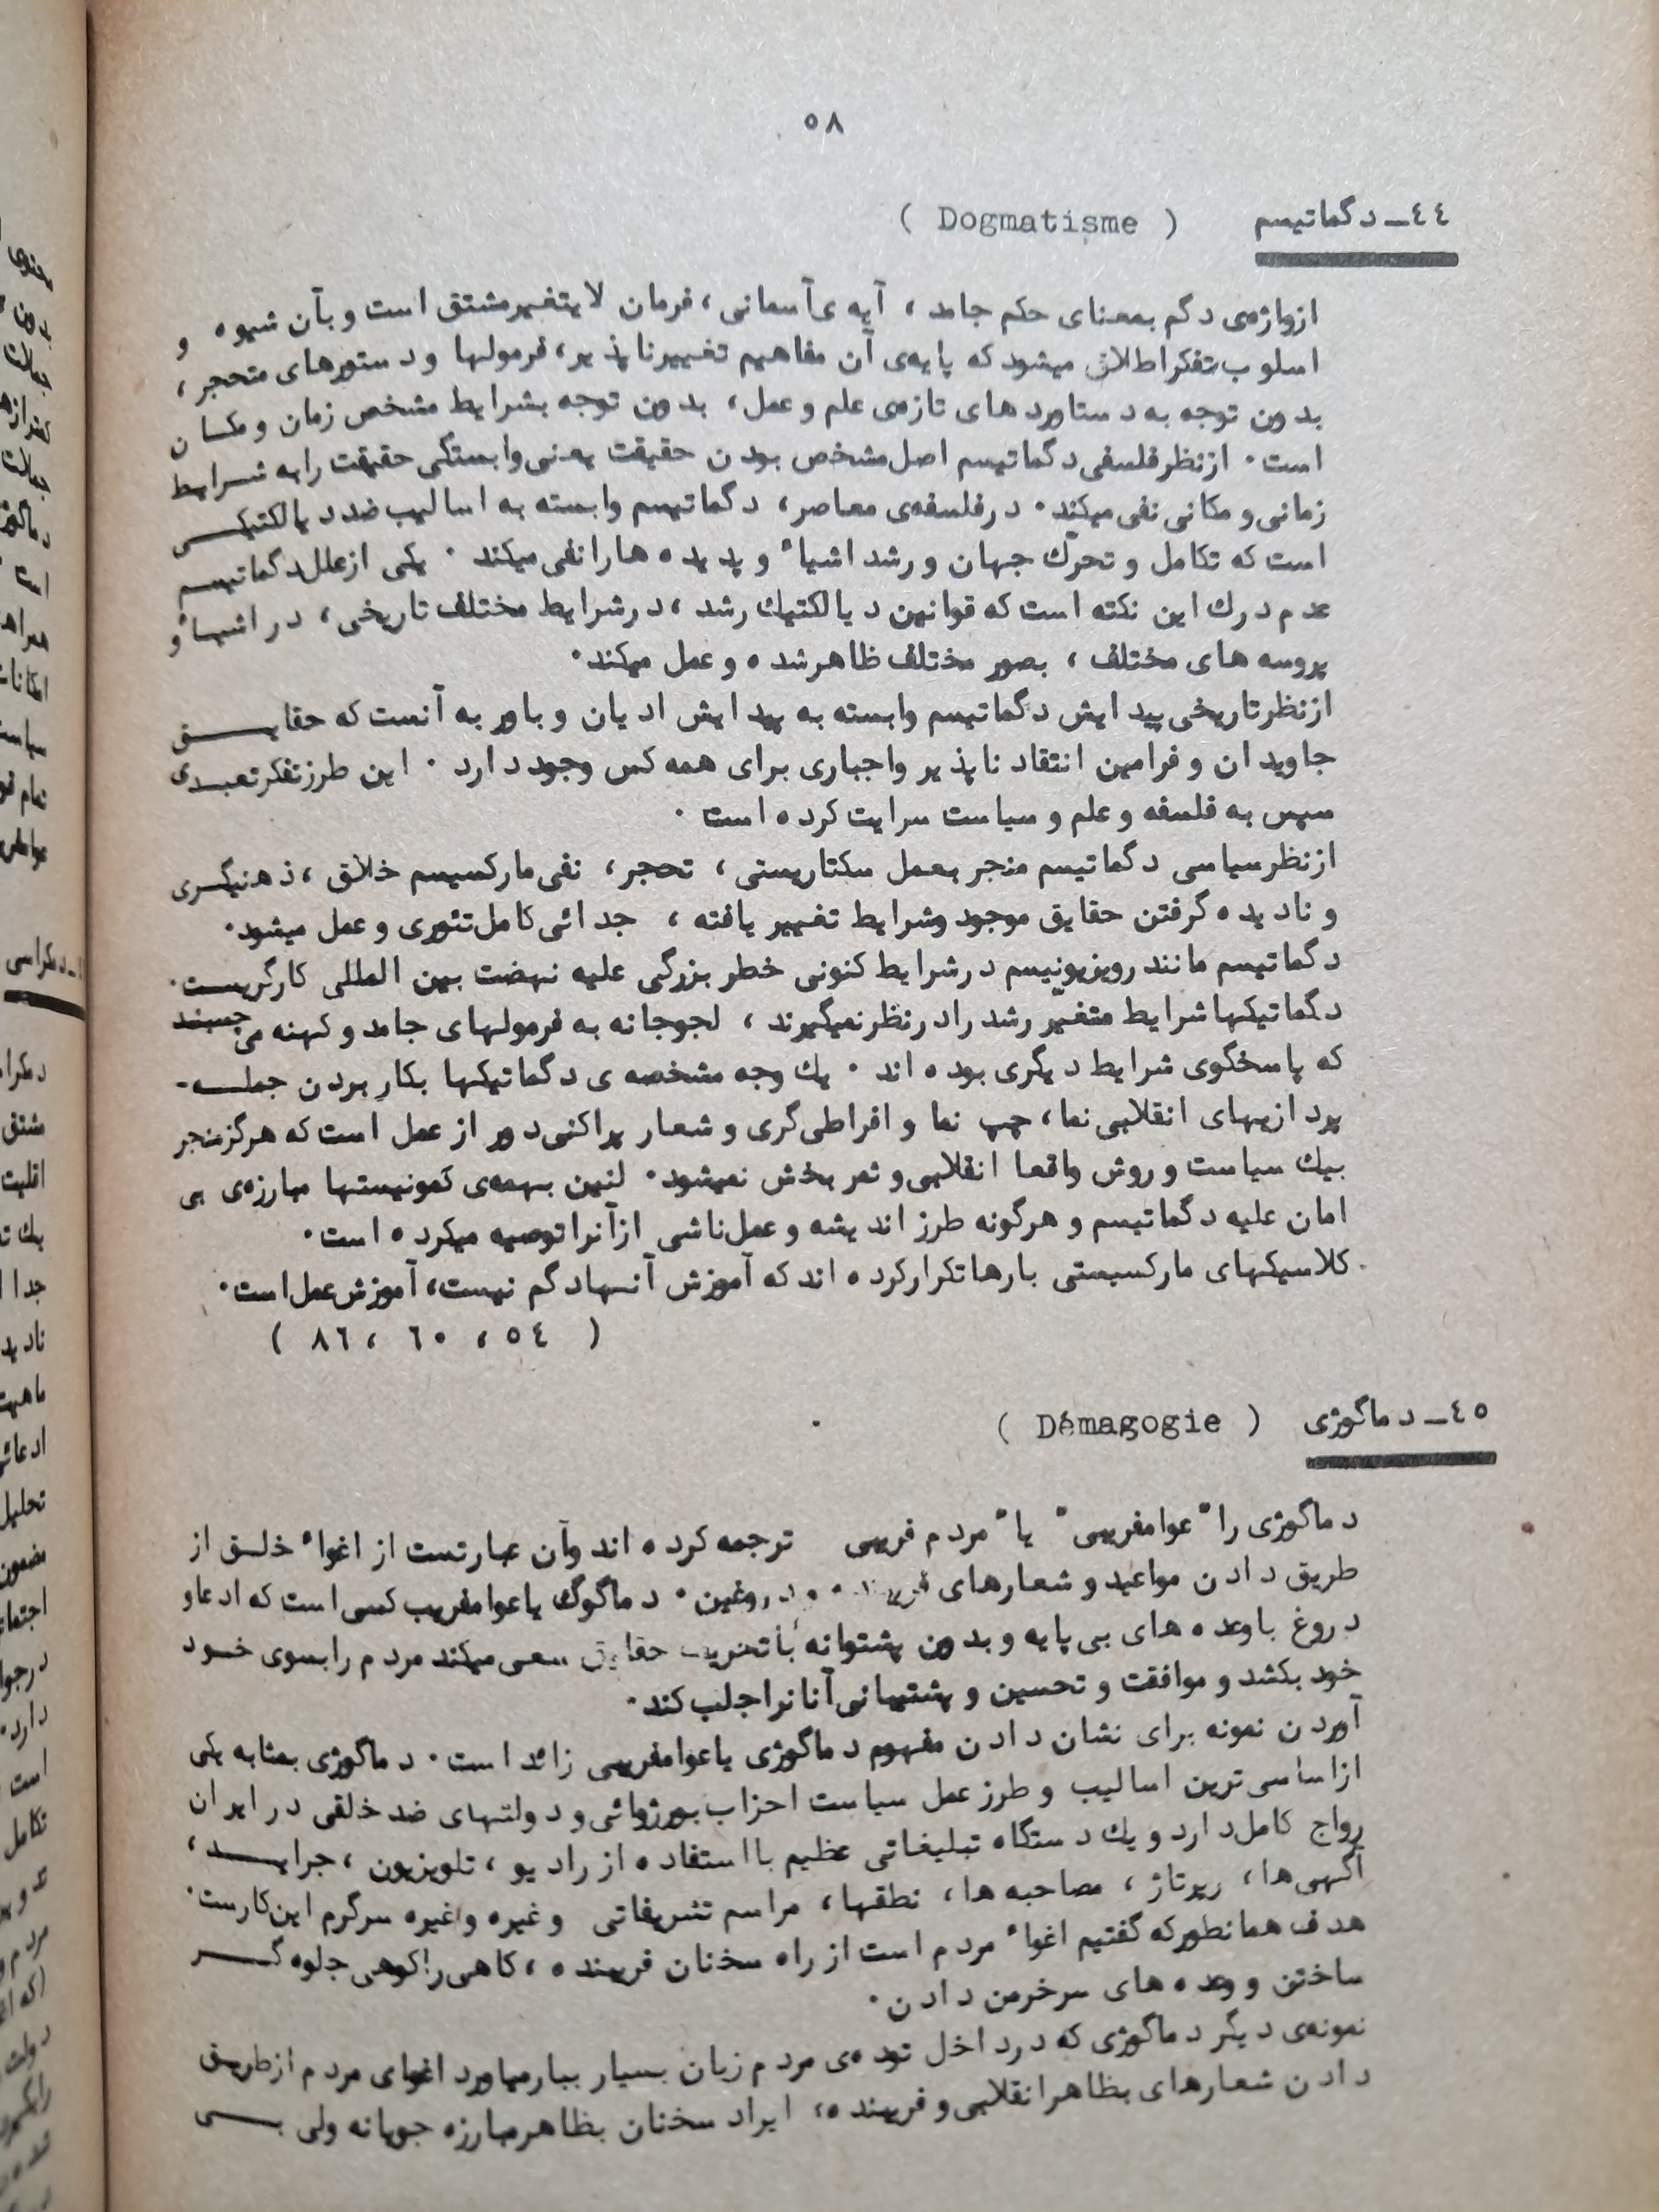 ۵۸
٤٤ـ دگماتیسم ( Dogmatisme )
ازواژه‌ی دگم بمعنای حکم جامد ، آیه ی‌آسمانی ، فرمان لایتغیرمشتق است و بآن شیوه و
اسلوب تفکراطلاق میشود که پایه‌ی آن مفاهیم تغییرناپذیر، فرمولها و دستورهای متحجر ،
بدون توجه به دستاوردهای تازه‌ی علم و عمل ، بدون توجه بشرایط مشخص زمان و مکان
است . ازنظرفلسفی دگماتیسم اصل مشخص بودن حقیقت یعنی وابستگی حقیقت رابه شرایط
زمانی و مکانی نفی میکند . درفلسفه‌ی معاصر ، دگماتیسم وابسته به اسالیب ضد دیالکتیکی
است که تکامل و تحرّک جهان و رشد اشیاء و پدیده هارانفی میکند . یکی ازعلل‌دگماتیسم
عدم درك این نکته است که قوانین دیالکتیك رشد ، درشرایط مختلف تاریخی ، در اشیاء و
پروسه های مختلف ، بصور مختلف ظاهرشده و عمل میکند .
ازنظرتاریخی پیدایش دگماتیسم وابسته به پیدایش ادیان و باور به آنست که حقایق
جاویدان و فرامین انتقاد ناپذیر واجباری برای همه کس وجود دارد . این طرزتفکرتعبدی
سپس به فلسفه و علم و سیاست سرایت کرده است .
ازنظرسیاسی دگماتیسم منجر بعمل سکتاریستی ، تحجر ، نفی مارکسیسم خلاق ، ذهنیگری
و نادیده گرفتن حقایق موجود وشرایط تغییر یافته ، جدائی کامل تئوری و عمل میشود .
دگماتیسم مانند رویزیونیسم درشرایط کنونی خطر بزرگی علیه نهضت بین المللی کارگریست .
دگماتیکها شرایط متغیّر رشد رادرنظرنمیگیرند ، لجوجانه به فرمولهای جامد و کهنه می چسبند
که پاسخگوی شرایط دیگری بوده اند . یك وجه مشخصه ی دگماتیکها بکار بردن جمله-
پردازیهای انقلابی نما ، چپ نما و افراطی گری و شعار پراکنی دور از عمل است که هرگزمنجر
بیك سیاست و روش واقعا انقلابی و ثمر بخش نمیشود . لنین بهمه‌ی کمونیستها مبارزه‌ی بی
امان علیه دگماتیسم و هرگونه طرز اندیشه و عمل ناشی ازآنراتوصیه میکرده است .
کلاسیکهای مارکسیستی بارهاتکرارکرده اند که آموزش آنهادگم نیست ، آموزش عمل است .
( ٥٤ ، ٦٠ ، ٨٦ )
٤٥ـ دماگوژی ( Démagogie )
دماگوژی را "عوامفریبی" یا "مردم فریبی ترجمه کرده اند وآن عبارتست از اغواء خلق از
طریق دادن مواعید و شعارهای دروغین . دماگوگ یاعوامفریب کسی است که ادعاو
دروغ باوعده های بی پایه و بدون پشتوانه باتحریف حقایق سعی میکند مردم رابسوی خود
خود بکشد و موافقت و تحسین و پشتیبانی آنانراجلب کند .
آوردن نمونه برای نشان دادن مفهوم دماگوژی یاعوامفریبی زائد است . دماگوژی بمثابه یکی
ازاساسی ترین اسالیب و طرز عمل سیاست احزاب بورژوائی و دولتهای ضد خلقی در ایران
رواج کامل دارد و یك دستگاه تبلیغاتی عظیم بااستفاده از رادیو ، تلویزیون ، جراید ،
آگهی ها ، رپرتاژ ، مصاحبه ها ، نطقها ، مراسم تشریفاتی و غیره وغیره سرگرم این کارست .
هدف همانطورکه گفتیم اغواء مردم است از راه سخنان فریبنده ، کاهی راکوهی جلوه گر
ساختن و وعده های سرخرمن دادن .
نمونه‌ی دیگر دماگوژی که درداخل توده‌ی مردم زیان بسیار ببارمیاورد اغوای مردم ازطریق
دادن شعارهای بظاهرانقلابی و فریبنده ، ایراد سخنان بظاهرمبارزه جویانه ولی بی